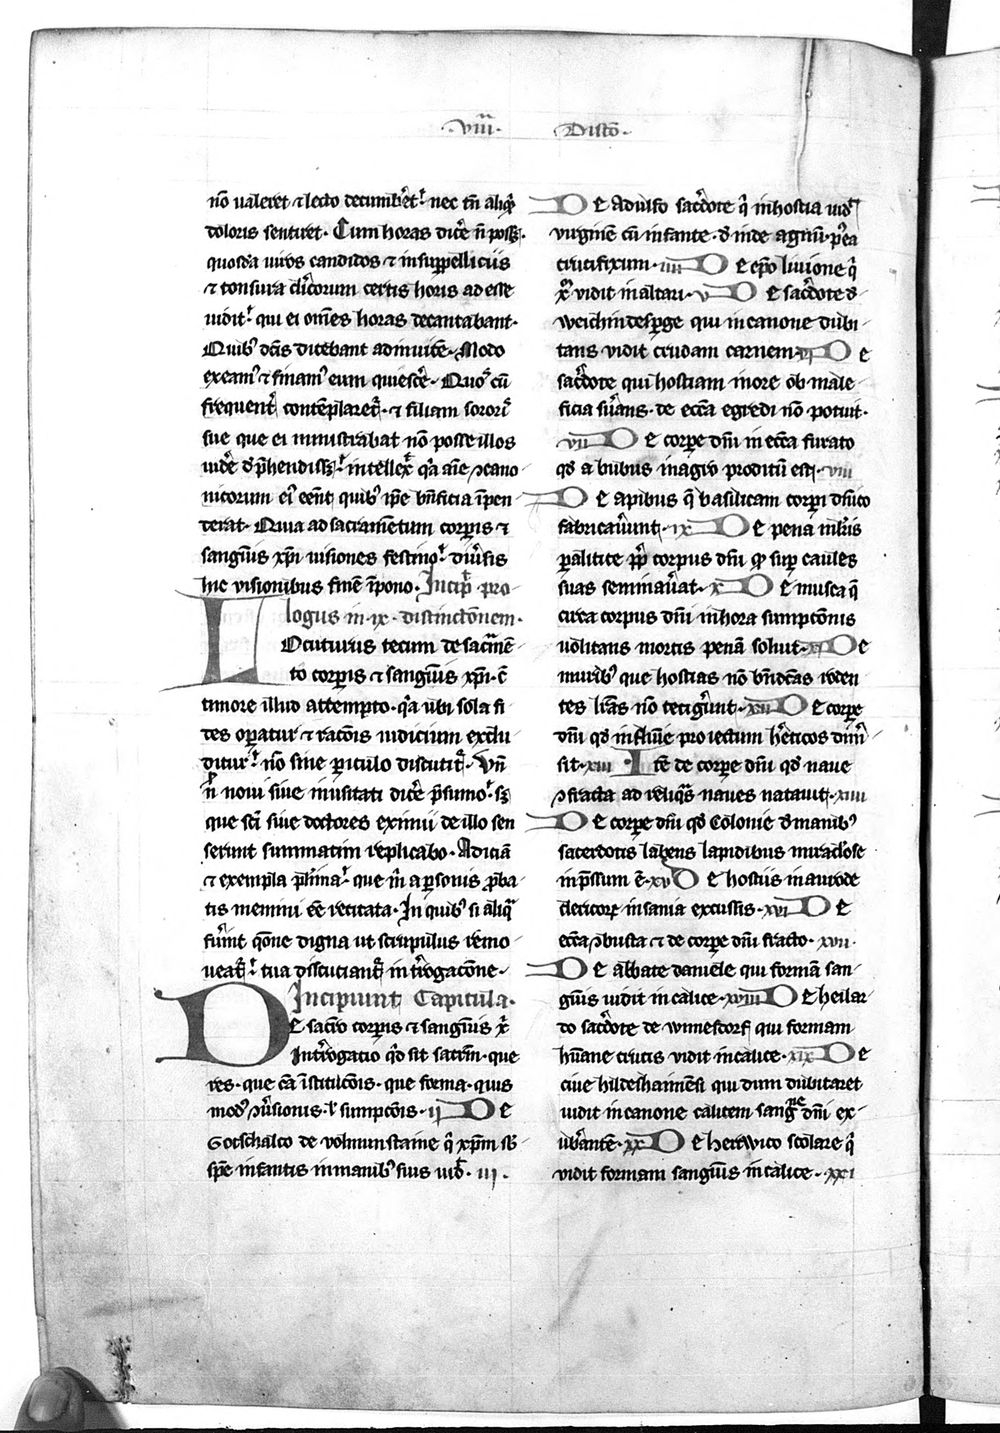 ·viii· Distō·
nō valeret ⁊ lecto decumb̄et· nec tn̄ aliq̄
doloris sentiret· Cum horas dic̄e n̄ poss&·
quosdā viros candidos ⁊ insuppelliciis
⁊ tonsura cl̄icorum certis horis adesse
vidit· qui ei om̄es horas decantabant·
Quibꝰ dc̄is dicebant adinuicē· Modo
exeamꝰ ⁊ sinamꝰ eum quiesc̄e· Quos cū
frequenẗ contēplareẗ· ⁊ filiam sororis
sue que ei ministrabat nō posse illos
vid̄e dep̄hendiss&· intellex̄ qꝛ aīe cano
nicorum ei eēnt quibꝰ ip̄e bn̄ficia īpen
derat· Quia ad sacramētum corpis ⁊
sanguīs xp̄i visiones festino· diūsis
hic visionibus finē īpono· Incip̄ pro
logus in ix· distinctōnem·
LOcuturus tecum de sacm̄e
to corpis ⁊ sanguīs xp̄i· c̄
timore illud attempto· qꝛ ubi sola fi
des op̄atur ⁊ racōis iudicium exclu
ditur· nō sine piculo discutiẗ· Un̄
n̄ noui siue inusitati dic̄e p̄sumo· sꝫ
que sc̄i siue doctores eximii de illo sen
serunt summatim replicabo· Adiciā
⁊ exempla p̄lima· que m̄ a psonis p̄ba
tis memini eē recitata· In quibꝰ si aliq̄
fūint q̄one digna ut scrupulus remo
ueaẗ· tua discutianẗ int̄rogacōne·
Incipiunt Capitula·
DE sac̄io corpis ⁊ sanguīs x̄
Int̄rogacio qd̄ sit sacm̄· que
res· que cā īstitucōis· que forma· quis
modꝰ ꝯūsionis· ł sumpcōis· ii De
Gotschalco de volmuntstaine q̄ xp̄m sb̄
spē infantis in manibꝰ suis vid̄· iii·
De adulfo sac̄dote q̄ in hostia vid̄
virginē cū infante· d̄inde agnū· p̄ea
crucifixum· iiii De ep̄o liuione q̄
x̄ vidit in altari· v De sac̄dote d̄
weichindesp̄ge qui in canone dubi
tans vidit crudam carnem· vi De
sac̄dote qui hostiam in ore ob male
ficia sūans· de ecc̄a egredi nō potuit·
vii De corpe dn̄i in ecc̄a furato
qd̄ a bubus in agro proditū est· viii
De apibus q̄ basilicam corpi dn̄ico
fabricauūnt· ix De pena mlīis
palitice q̄ corpus dn̄i sup caules
suas seminaūat· x De musca q̄
circa corpus dn̄i in hora sumptōnis
volitans mortis penā soluit· xi De
muribꝰ que hostias nō bn̄dc̄as roden
tes lr̄as nō tetiḡunt· xii De corpe
dn̄i qd̄ in flumē proiectum h̄eticos dim̄
sit· xiii Itē de corpe dn̄i qd̄ naue
ꝯfracta ad reliq̄s naues natauit· xiiii
De corpe dn̄i qd̄ Colonie d̄ manibꝰ
sacerdotis labens lapidibus miraclose
inp̄ssum ē· xv De hostiis in aurode
clericoꝝ insania excussis· xvi De
ecc̄a ꝯbusta ⁊ de corpe dn̄i fracto· xvii·
De abbate daniele qui formā san
guīs vidit in calice· xviii De heilar
do sac̄dote de winnestorf qui formam
hūane crucis vidit in calice· xix De
ciue hildeshaimēsi qui dum dubitaret
vidit in canone calitem sanḡne dn̄i ex
ūbantē· xx De herwico scolare q̄
vidit formam sanguīs in calice· xxi